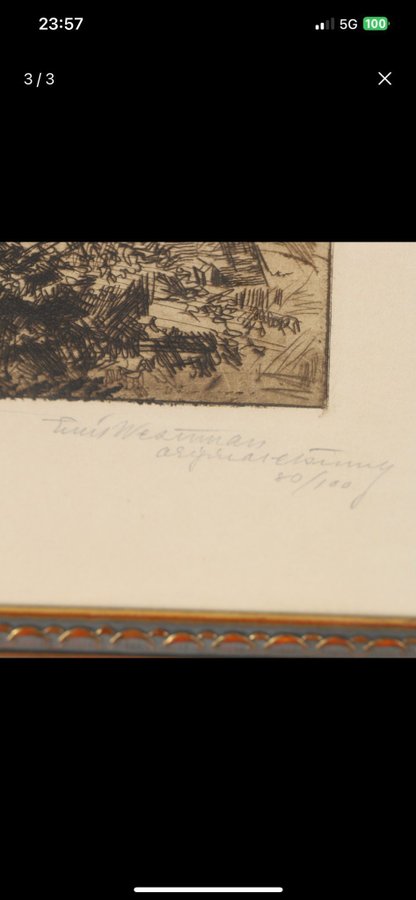 23:57
5G 100
3 / 3
Emil Westman
originaletsning
80/100